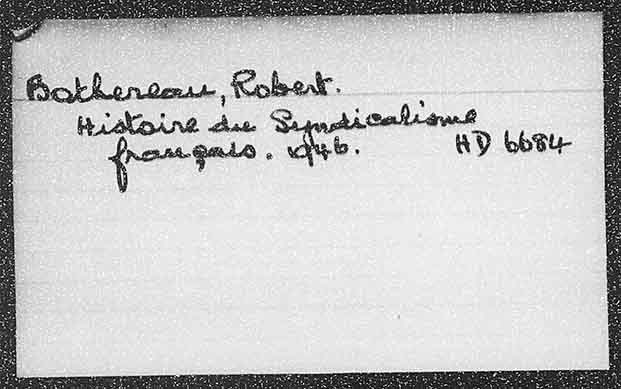 Bothereau, Robert.
Histoire du Syndicalisme
français. 1946. HD 6684